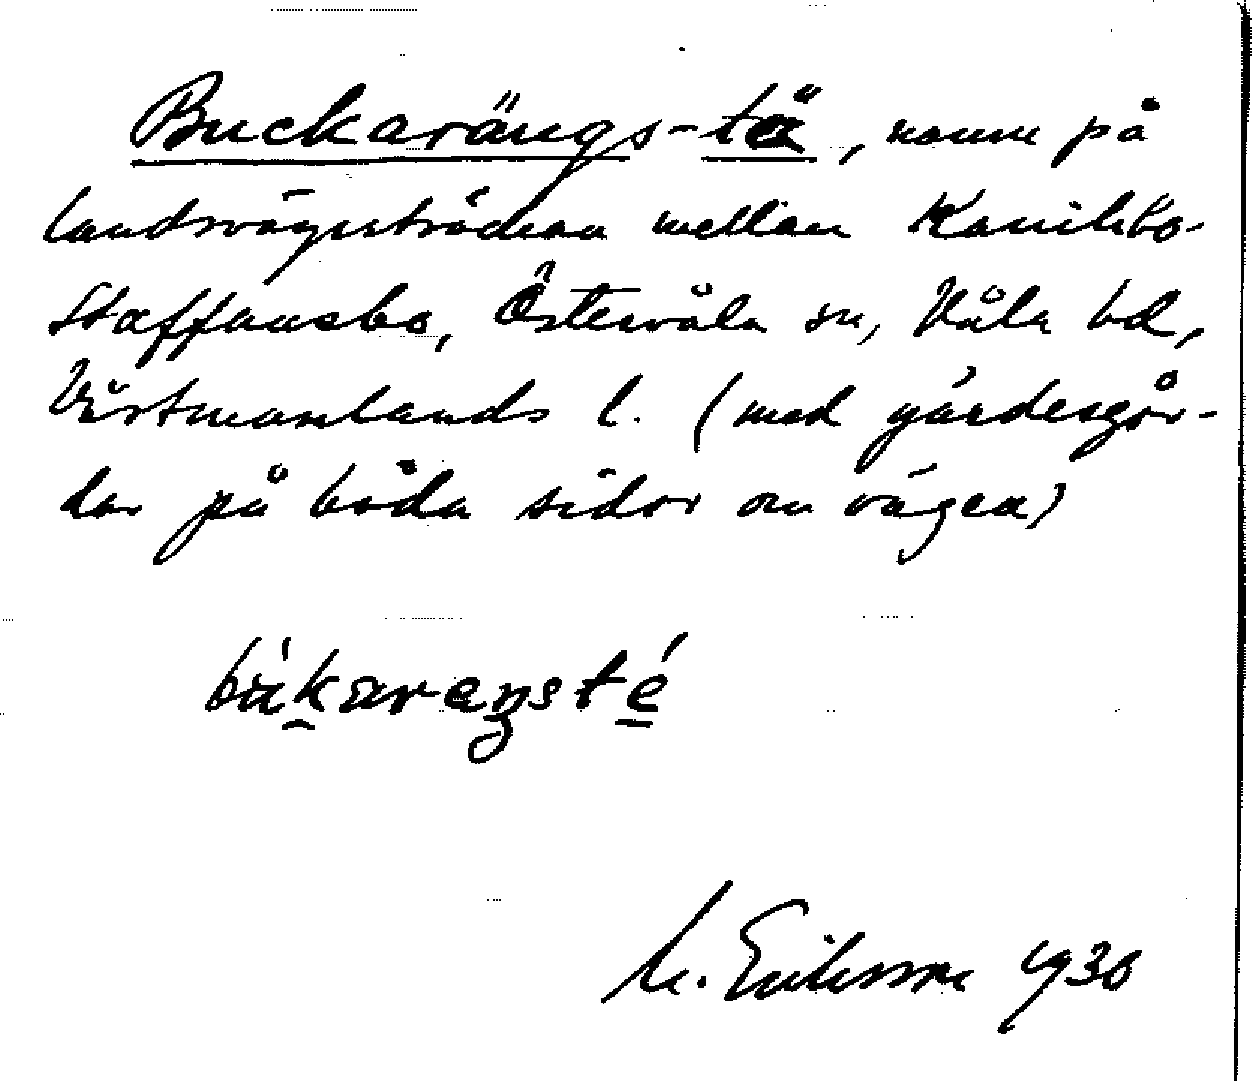 Buckarängs-tä, namn på
landsvägssträckan mellan Kanikbo-
Staffansbo, Östervåla sn, Våla hd,
Västmanlands l. (med gärdesgår-
dar på båda sidor om vägen)
bùkareŋsté
M. Eriksson 1930